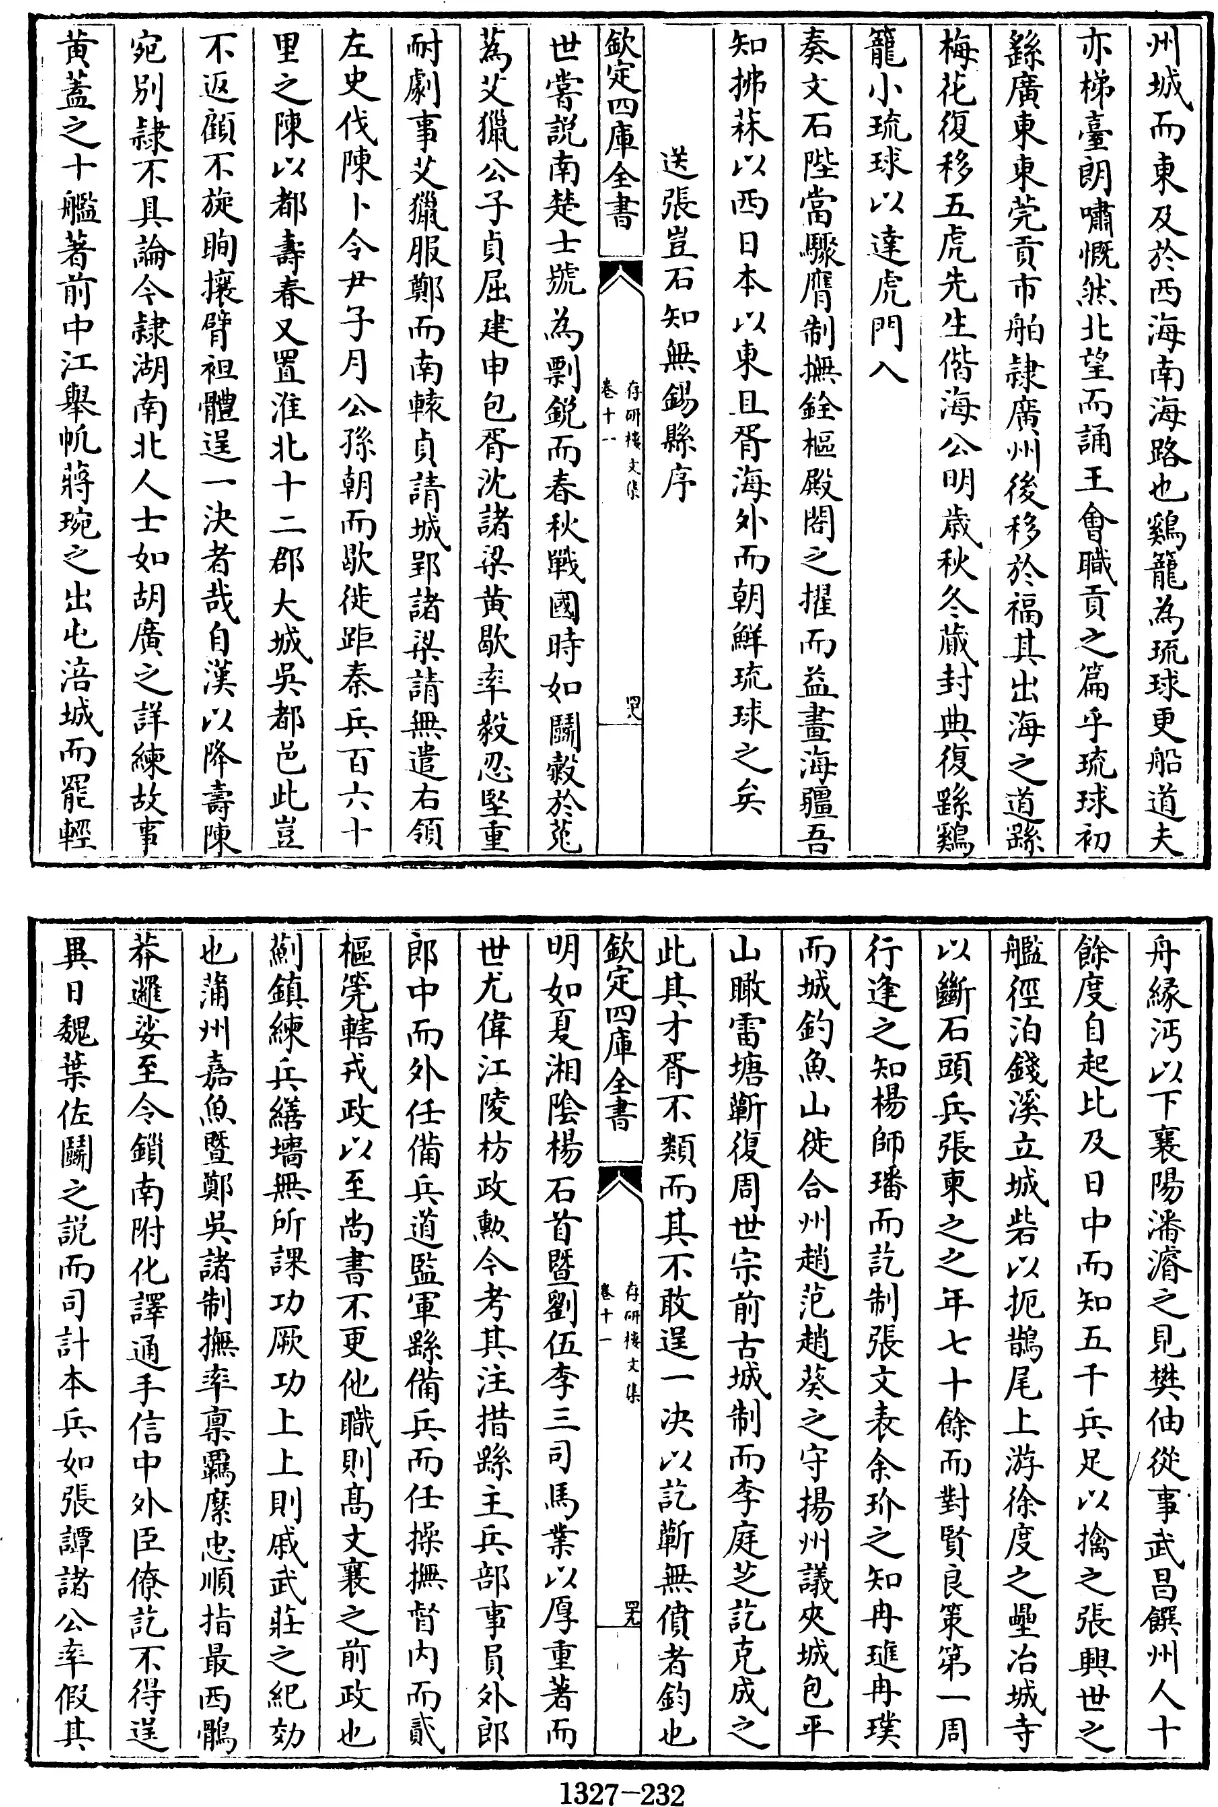 州城而東及於西海南海路也鷄籠為琉球更船道夫
亦梯臺朗嘯慨然北望而誦王會職貢之篇乎琉球初
繇廣東東莞貢市舶隷廣州後移於福其出海之道繇
梅花復移五虎先生偕海公明歳秋冬蕆封典復繇鷄
籠小琉球以達虎門入
奏文石陛當驟膺制撫銓樞殿閣之擢而益畫海疆吾
知拂菻以西日本以東且胥海外而朝鮮琉球之矣
送張豈石知無錫縣序
欽定四庫全書
存研樓文集
卷十一
世嘗説南楚士號為剽鋭而春秋戰國時如鬬榖於菟
蒍艾獵公子貞屈建申包胥沈諸梁黄歇率毅忍堅重
耐劇事艾獵服鄭而南轅貞請城郢諸梁請無遣右領
左史伐陳卜令尹子月公孫朝而歇徙距秦兵百六十
里之陳以都壽春又置淮北十二郡大城吳都邑此豈
不返顧不旋眴攘臂袒體逞一決者哉自漢以降壽陳
宛别隷不具論今隷湖南北人士如胡廣之詳練故事
黄蓋之十艦著前中江舉帆蔣琬之出屯涪城而罷輕
舟縁沔以下襄陽潘濬之見樊伷從事武昌饌州人十
餘度自起比及日中而知五千兵足以擒之張興世之
艦徑泊錢溪立城砦以扼鵲尾上游徐度之壘冶城寺
以斷石頭兵張柬之之年七十餘而對賢良策第一周
行逢之知楊師璠而訖制張文表余玠之知冉璡冉璞
而城釣魚山徙合州趙范趙葵之守揚州議夾城包平
山瞰雷塘蘄復周世宗前古城制而李庭芝訖克成之
此其才胥不類而其不敢逞一決以訖蘄無僨者鈞也
欽定四庫全書
存研樓文集
卷十一
明如夏湘陰楊石首暨劉伍李三司馬業以厚重著而
世尤偉江陵枋政勲今考其注措繇主兵部事員外郎
郎中而外任備兵道監軍繇備兵而任操撫督内而貳
樞筦轄戎政以至尚書不更他職則髙文襄之前政也
薊鎮練兵繕墻無所課功厥功上上則戚武莊之紀効
也蒲州嘉魚暨鄭吳諸制撫率稟羈縻忠順指最西鶻
莽邏娑至令鎖南附化譯通手信中外臣僚訖不得逞
異日魏葉佐鬬之説而司計本兵如張譚諸公率假其
1327-232